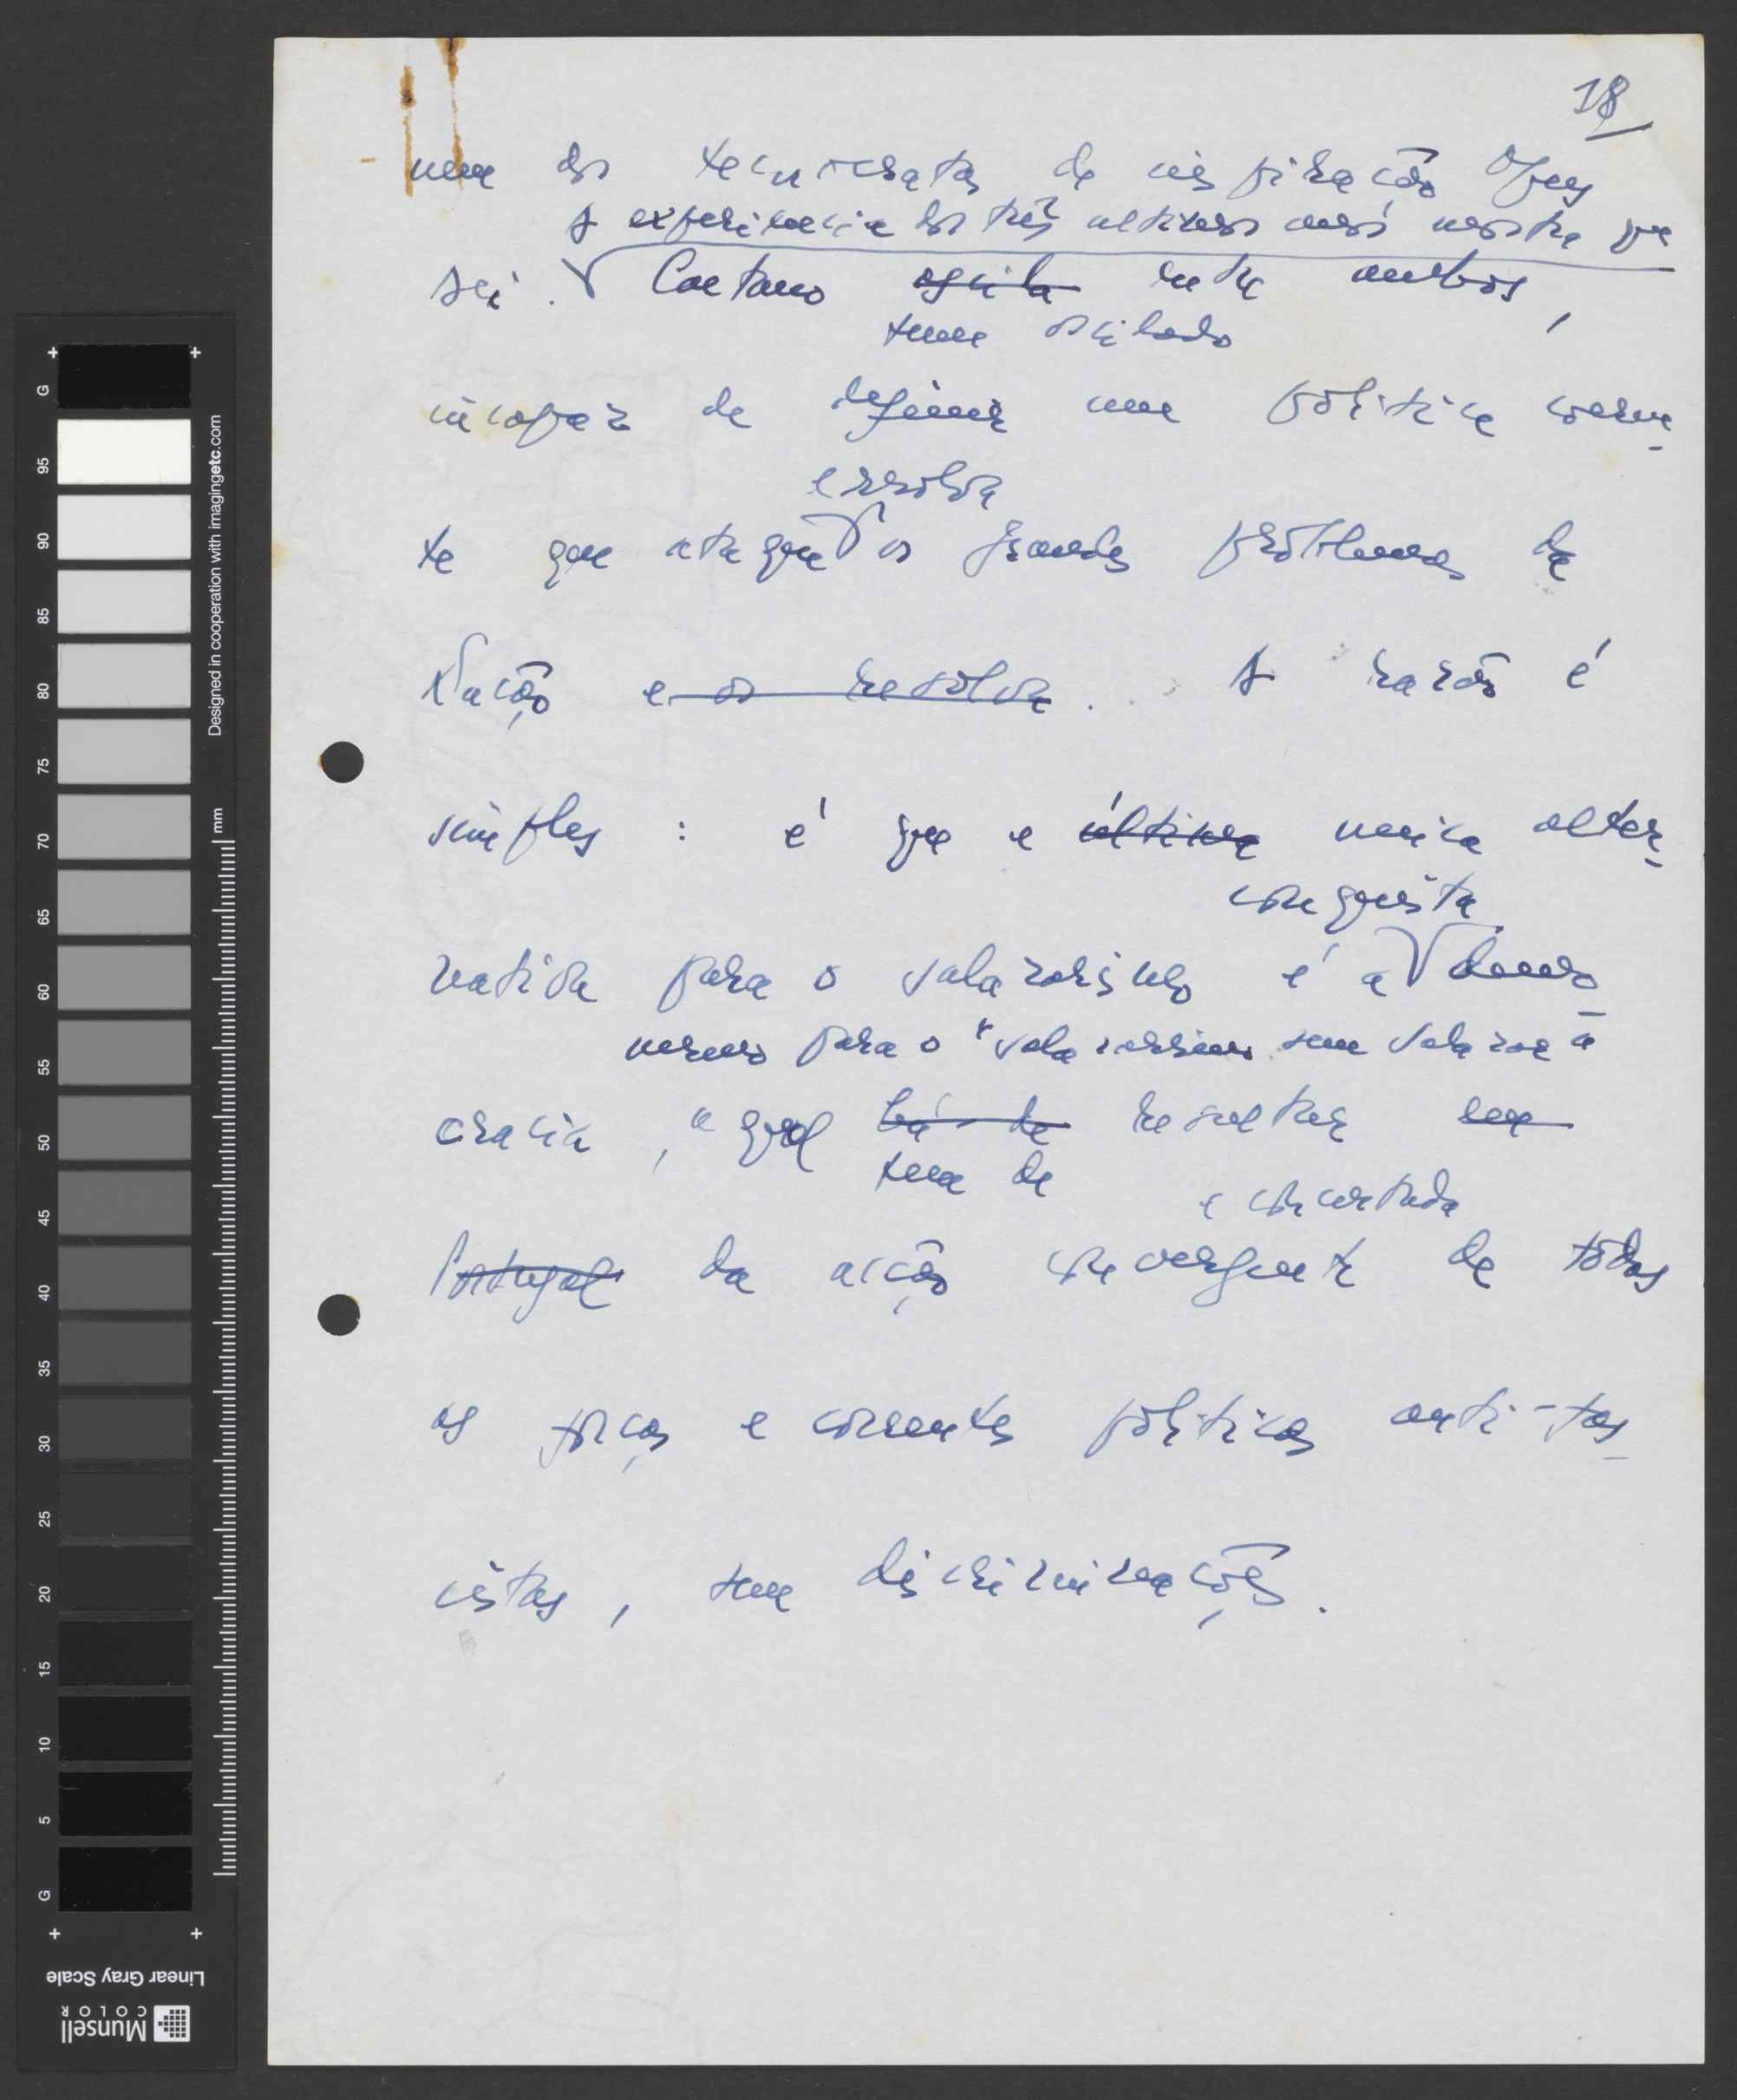 18
nem dos tecnocratas de inspiração Opus
A experiência dos três ultimos anos mostra que
Dei. Caetano oscila entre ambos,
tem oscilado
incapaz de definir uma política coeren-
e resolva
te que ataque os grandes problemas da
Nação e os resolva. A razão é
simples: é que a última unica alter-
conquista
nativa para o salazarismo é a demo-
mesmo para o "salazarismo sem Salazar"
cracia, a qual há-de resultar em
tem de
e concertada
Portugal da acção convergente de todas
as fôrças e correntes politicas anti-fas-
cistas, sem discriminações.
G 95 90 85 80 75 70 65 60 55 50 45 40 35 30 25 20 15 10 5 G
Designed in cooperation with imagingetc.com
mm
Linear Gray Scale
Munsell
COLOR